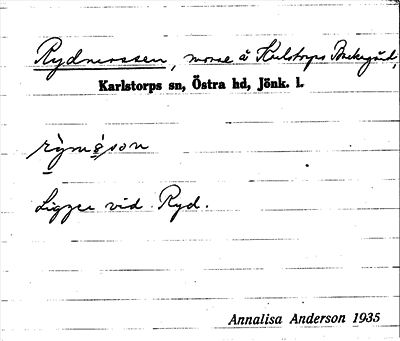 Rydmossen, mosse å Karlstorps Backgård,
Karlstorps sn, Östra hd, Jönk. l.
Ligger vid Ryd.
Annalisa Anderson 1935